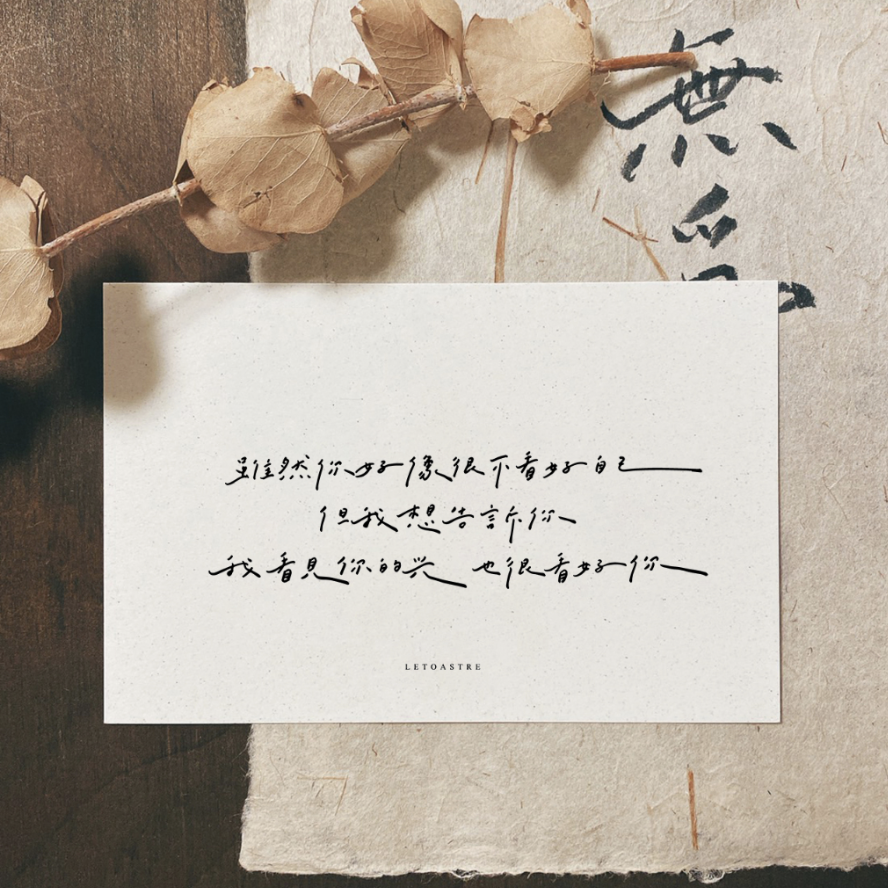 無
雖然你好像很不看好自己
但我想告訴你
我看見你的光 也很看好你
LETOASTRE